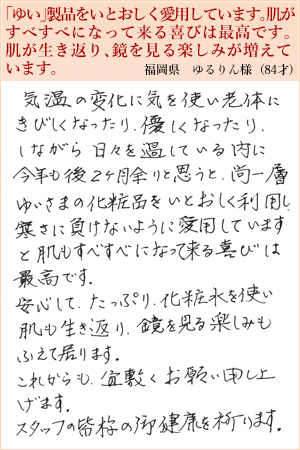 「ゆい」製品をいとおしく愛用しています。肌が
すべすべになって来る喜びは最高です。
肌が生き返り、鏡を見る楽しみが増えて
います。
福岡県 ゆるりん様（84才）
気温の変化に気を使い老体に
きびしくなったり、優しくなったり、
しながら 日々を過している内に
今年も後2ヶ月余りと思うと、尚一層
ゆいさまの化粧品をいとおしく利用し
寒さに負けないように愛用しています
と肌もすべすべになって来る喜びは
最高です。
安心して、たっぷり、化粧水を使い
肌も生き返り、鏡を見る楽しみも
ふえて居ります。
これからも、宜敷くお願い申し上
げます。
スタッフの皆様の御健康を祈ります。